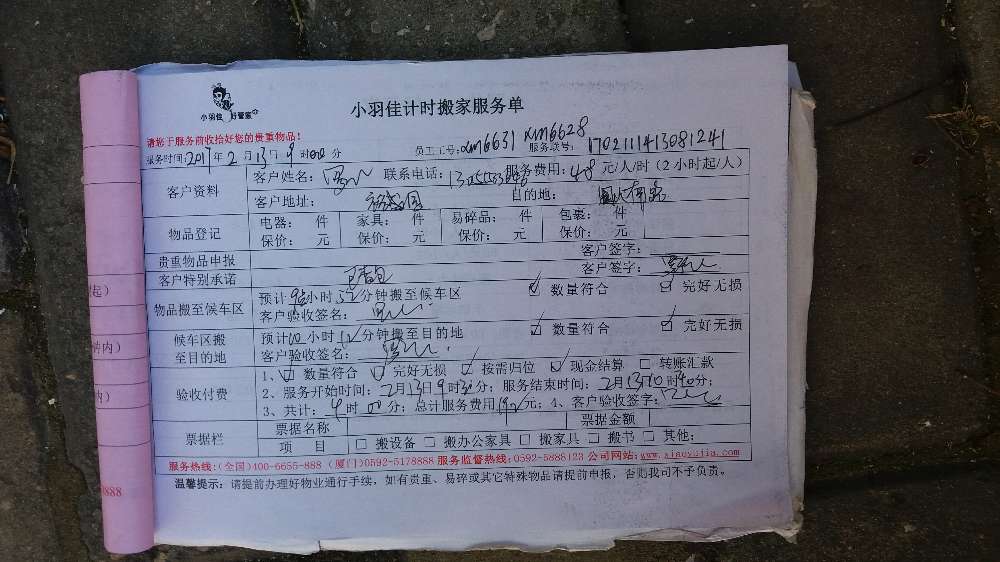 小羽佳 好管家
小羽佳计时搬家服务单
请您于服务前收拾好您的贵重物品!
员工工号: xm6631 xm6628
服务时间: 2017年2月13日9时 分 服务联号: 1702111413081241
客户资料 客户姓名: 联系电话: 服务费用: 48元/人/时(2小时起/人)
客户地址: 目的地:
物品登记 电器: 件 家具: 件 易碎品: 件 包裹: 件
保价: 元 保价: 元 保价: 元 保价: 元
贵重物品申报 客户签字:
客户特别承诺 客户签字:
物品搬至候车区 预计 小时 分钟搬至候车区 ☑ 数量符合 ☑ 完好无损
客户验收签名:
候车区搬至目的地 预计 小时 分钟搬至目的地 ☑ 数量符合 ☑ 完好无损
客户验收签名:
验收付费 1、☑ 数量符合 ☑ 完好无损 ☑ 按需归位 ☑ 现金结算 □ 转账汇款
2、服务开始时间: 2月13日9时30分; 服务结束时间: 2月13日 时 分;
3、共计: 4时00分; 总计服务费用192元; 4、客户验收签字:
票据栏 票据名称 票据金额
项 目 □ 搬设备 □ 搬办公家具 □ 搬家具 □ 搬书 □ 其他:
服务热线:(全国)400-6655-888 (厦门)0592-5178888 服务监督热线:0592-5888123 公司网站:www.xiaoyujia.com
温馨提示: 请提前办理好物业通行手续, 如有贵重、易碎或其它特殊物品请提前申报, 否则我司不予负责。
起)
内)
8888